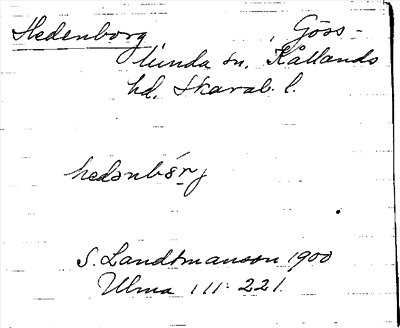 Hedenborg, Göss-
lunda sn. Kållands
hd. Skarab. l.
hedənbórj
S. Landtmanson 1900
Ulma 111: 221.